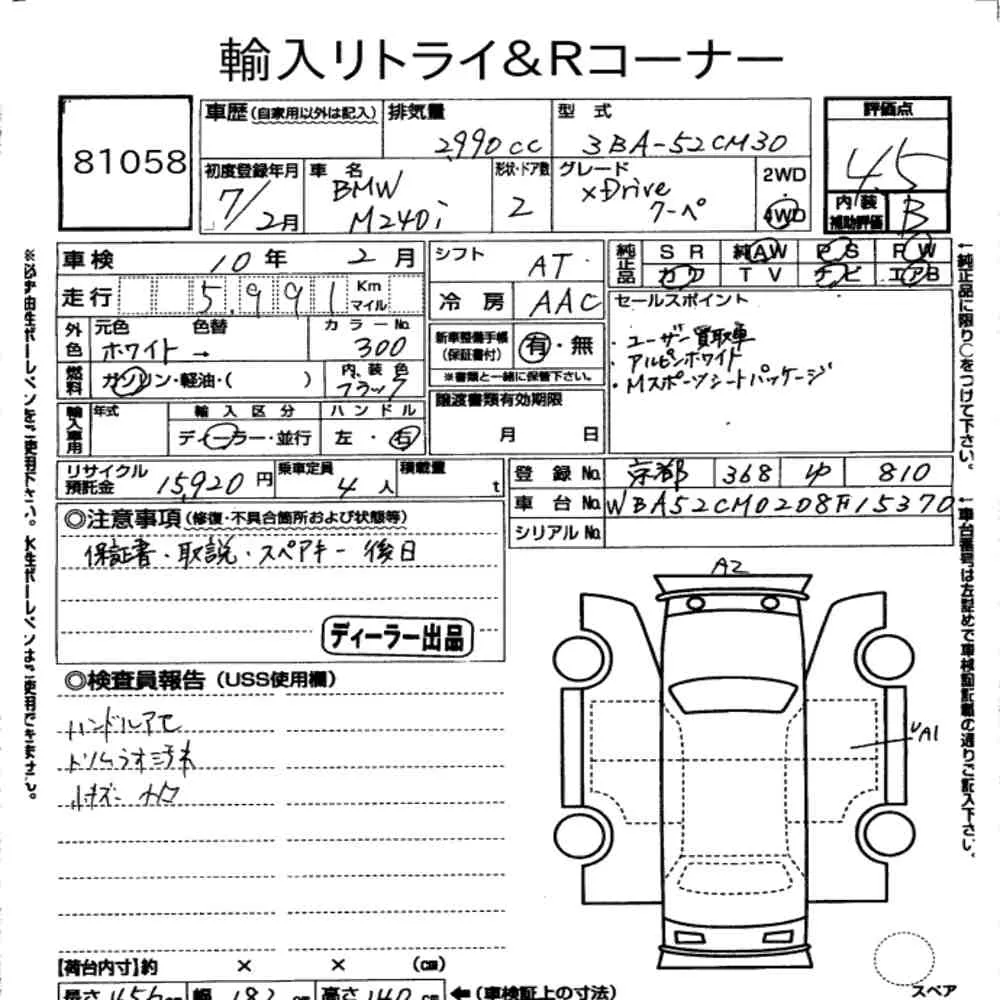 輸入リトライ&Rコーナー
81058
車歴(自家用以外は記入) 排気量 2,990cc 型式 3BA-52CM30
評価点 4.5
初度登録年月 7/2月 車名 BMW M240i 形状・ドア数 2 グレード xDrive クーペ 2WD 4WD
内装補助評価 B
車検 10年 2月 シフト AT
走行 5,991 Km マイル 冷房 AAC
純正品 SR 純AW PS PW
カワ TV ナビ エアB
外色 元色 ホワイト 色替 → カラーNo. 300
新車整備手帳(保証書付) 有・無
※書類と一緒に保管下さい。
セールスポイント
・ユーザー買取車
・アルピンホワイト
・Mスポーツシートパッケージ
燃料 ガソリン・軽油・( ) 内装色 ブラック
譲渡書類有効期限 月 日
輸入車用 年式 輸入区分 ディーラー・並行 ハンドル 左・右
リサイクル預託金 15,920円 乗車定員 4人 積載量 t
登録No. 京都 368 ゆ 810
車台No. WBA52CM0208F15370
シリアルNo.
◎注意事項(修復・不具合箇所および状態等)
保証書・取説・スペアキー 後日
ディーラー出品
◎検査員報告(USS使用欄)
ハンドルアセ
小キズ
A2
A1
【荷台内寸】約 × × (cm)
長さ 456cm 幅 182cm 高さ 140cm ←(車検証上の寸法)
スペア
※必ず油性ボールペンをご使用下さい。水性ボールペンはご使用できません。
←純正品に限り○をつけて下さい。
←車台番号は左詰めで車検証記載の通りご記入下さい。